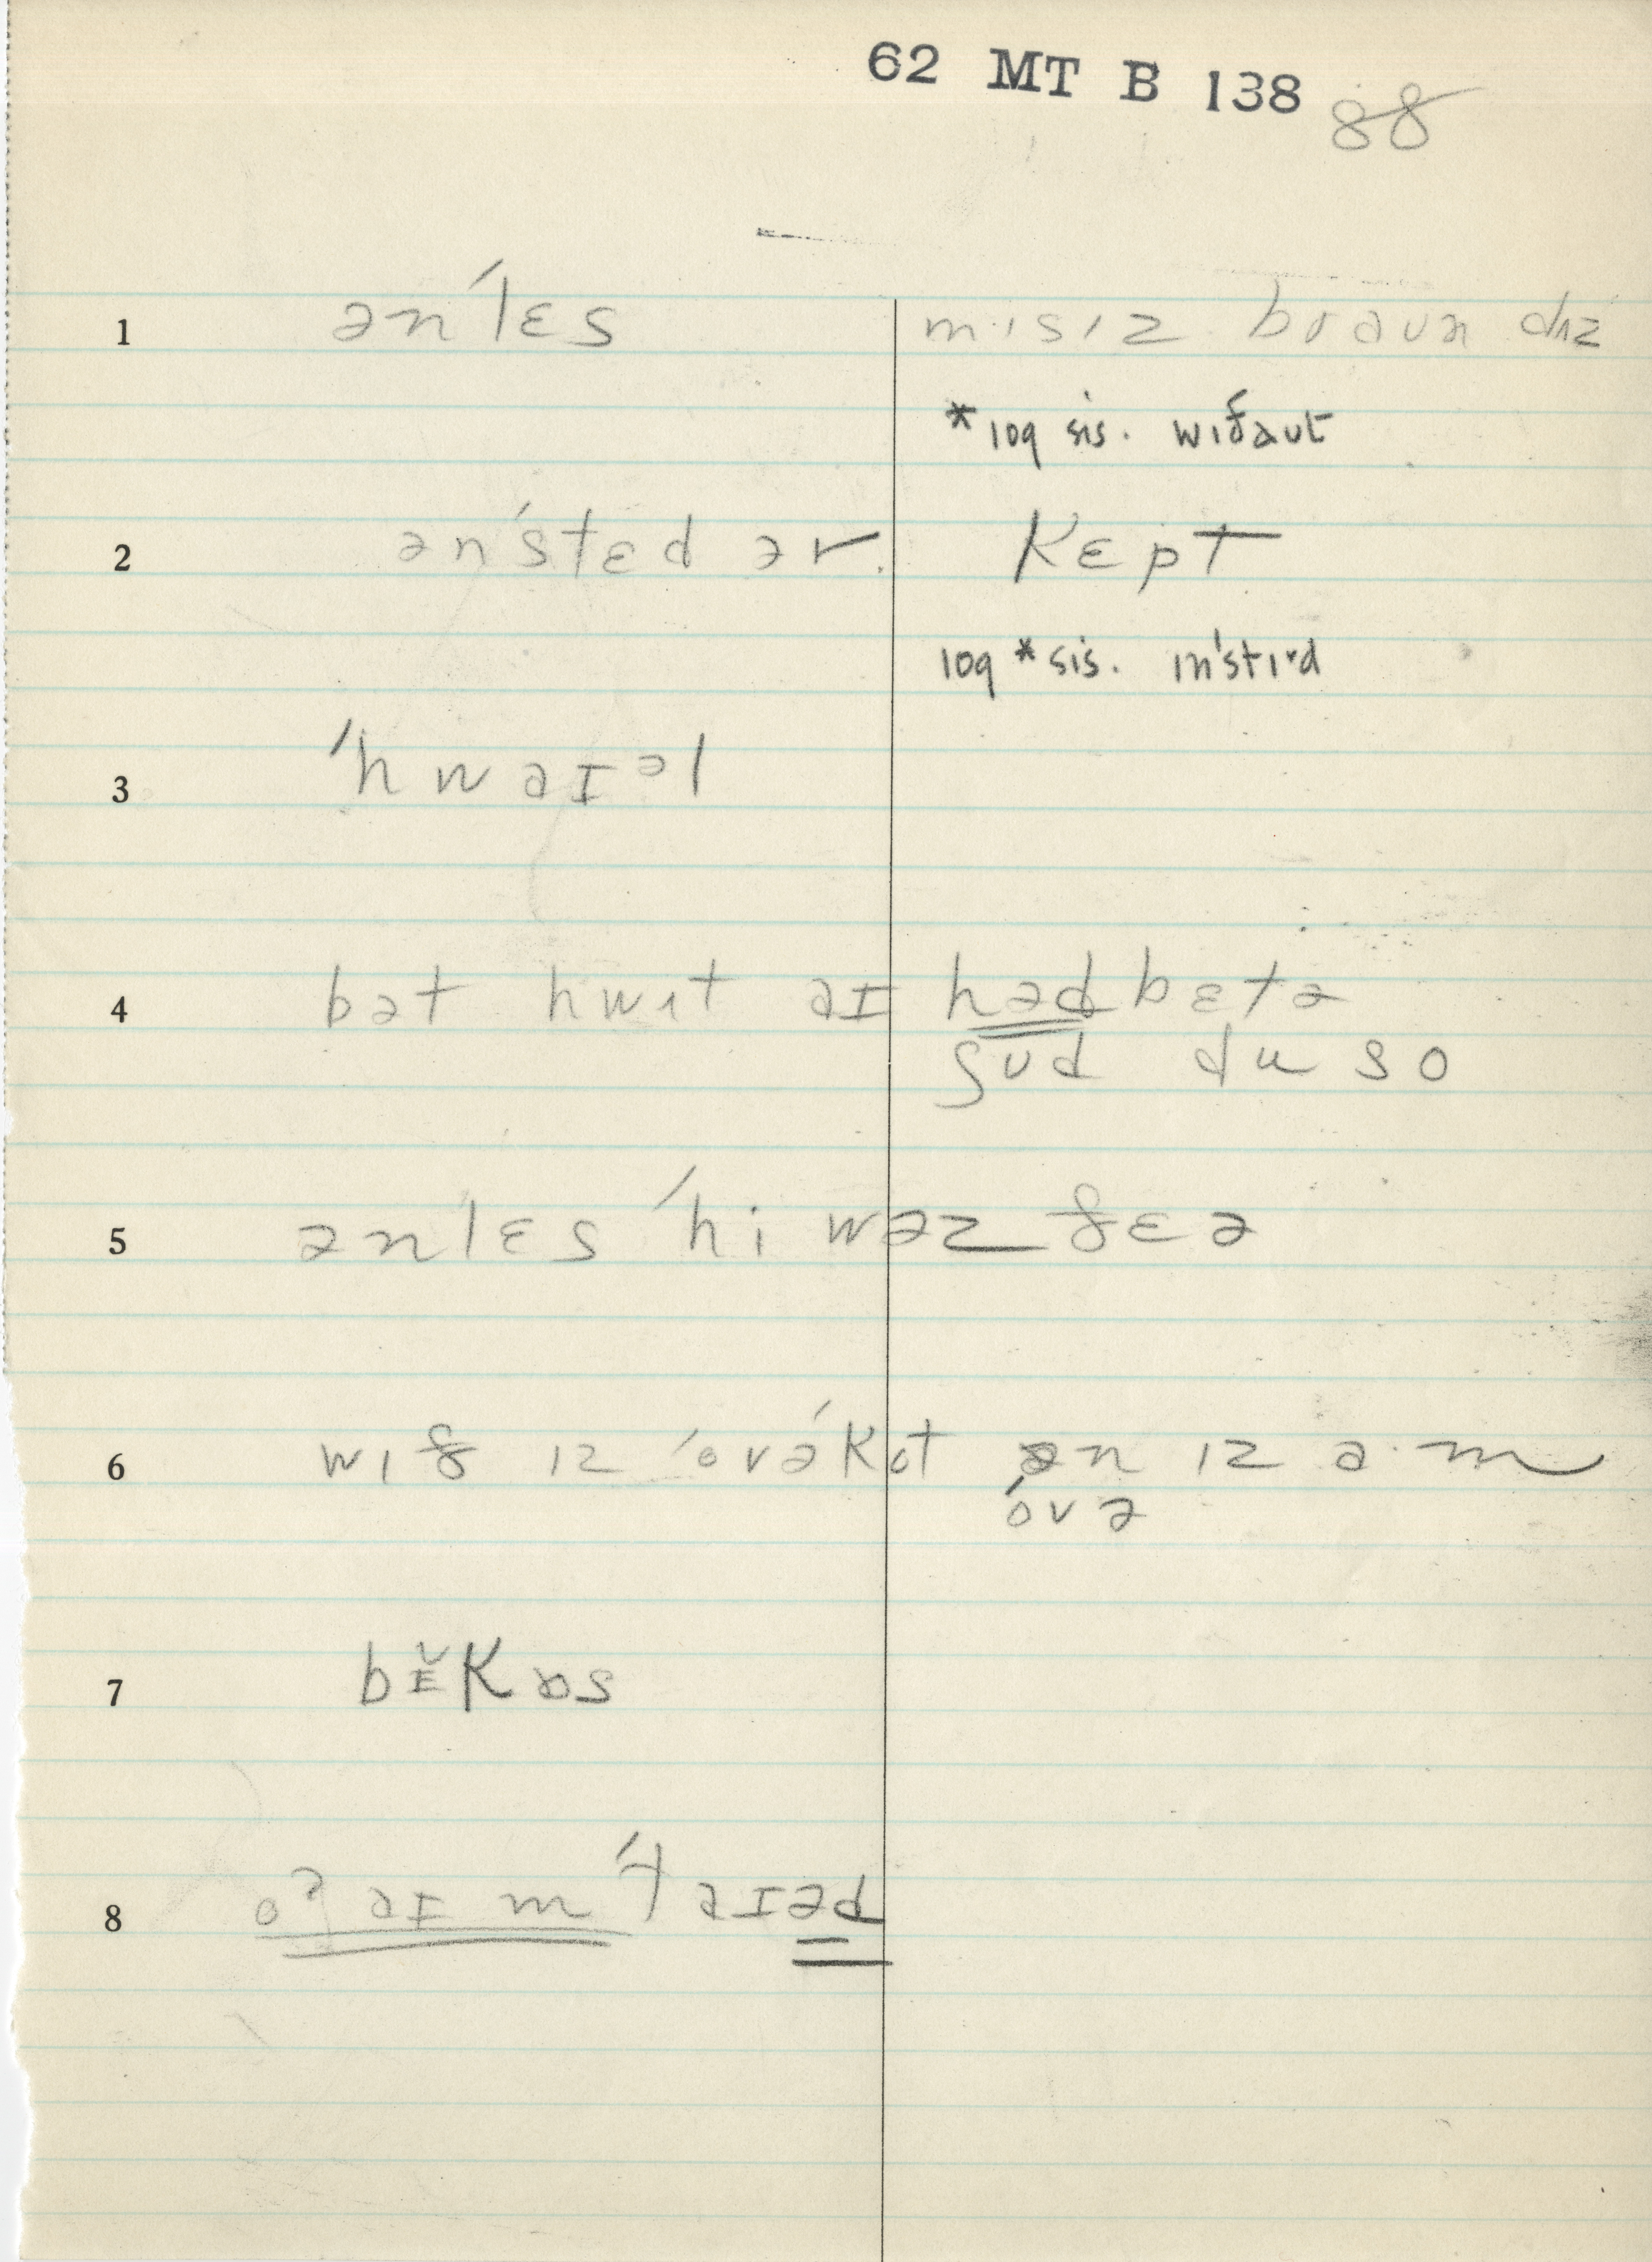 62 MT B 138 88
1 ən'lɛs mɪsɪz braun dʌz
*log sis. wɪðaut
2 ən'stɛd ər kɛpt
log *sis. ɪn'stɪd
3 'hwaɪəl
4 bət hwɪt aɪ həd bɛtə
ʃʊd du so
5 ənlɛs 'hi wəz ðɛə
6 wɪð ɪz 'ovəkot ən ɪz a·m
'ovə
7 bɪ̆kɒs
8 aɪ m 'taɪəd